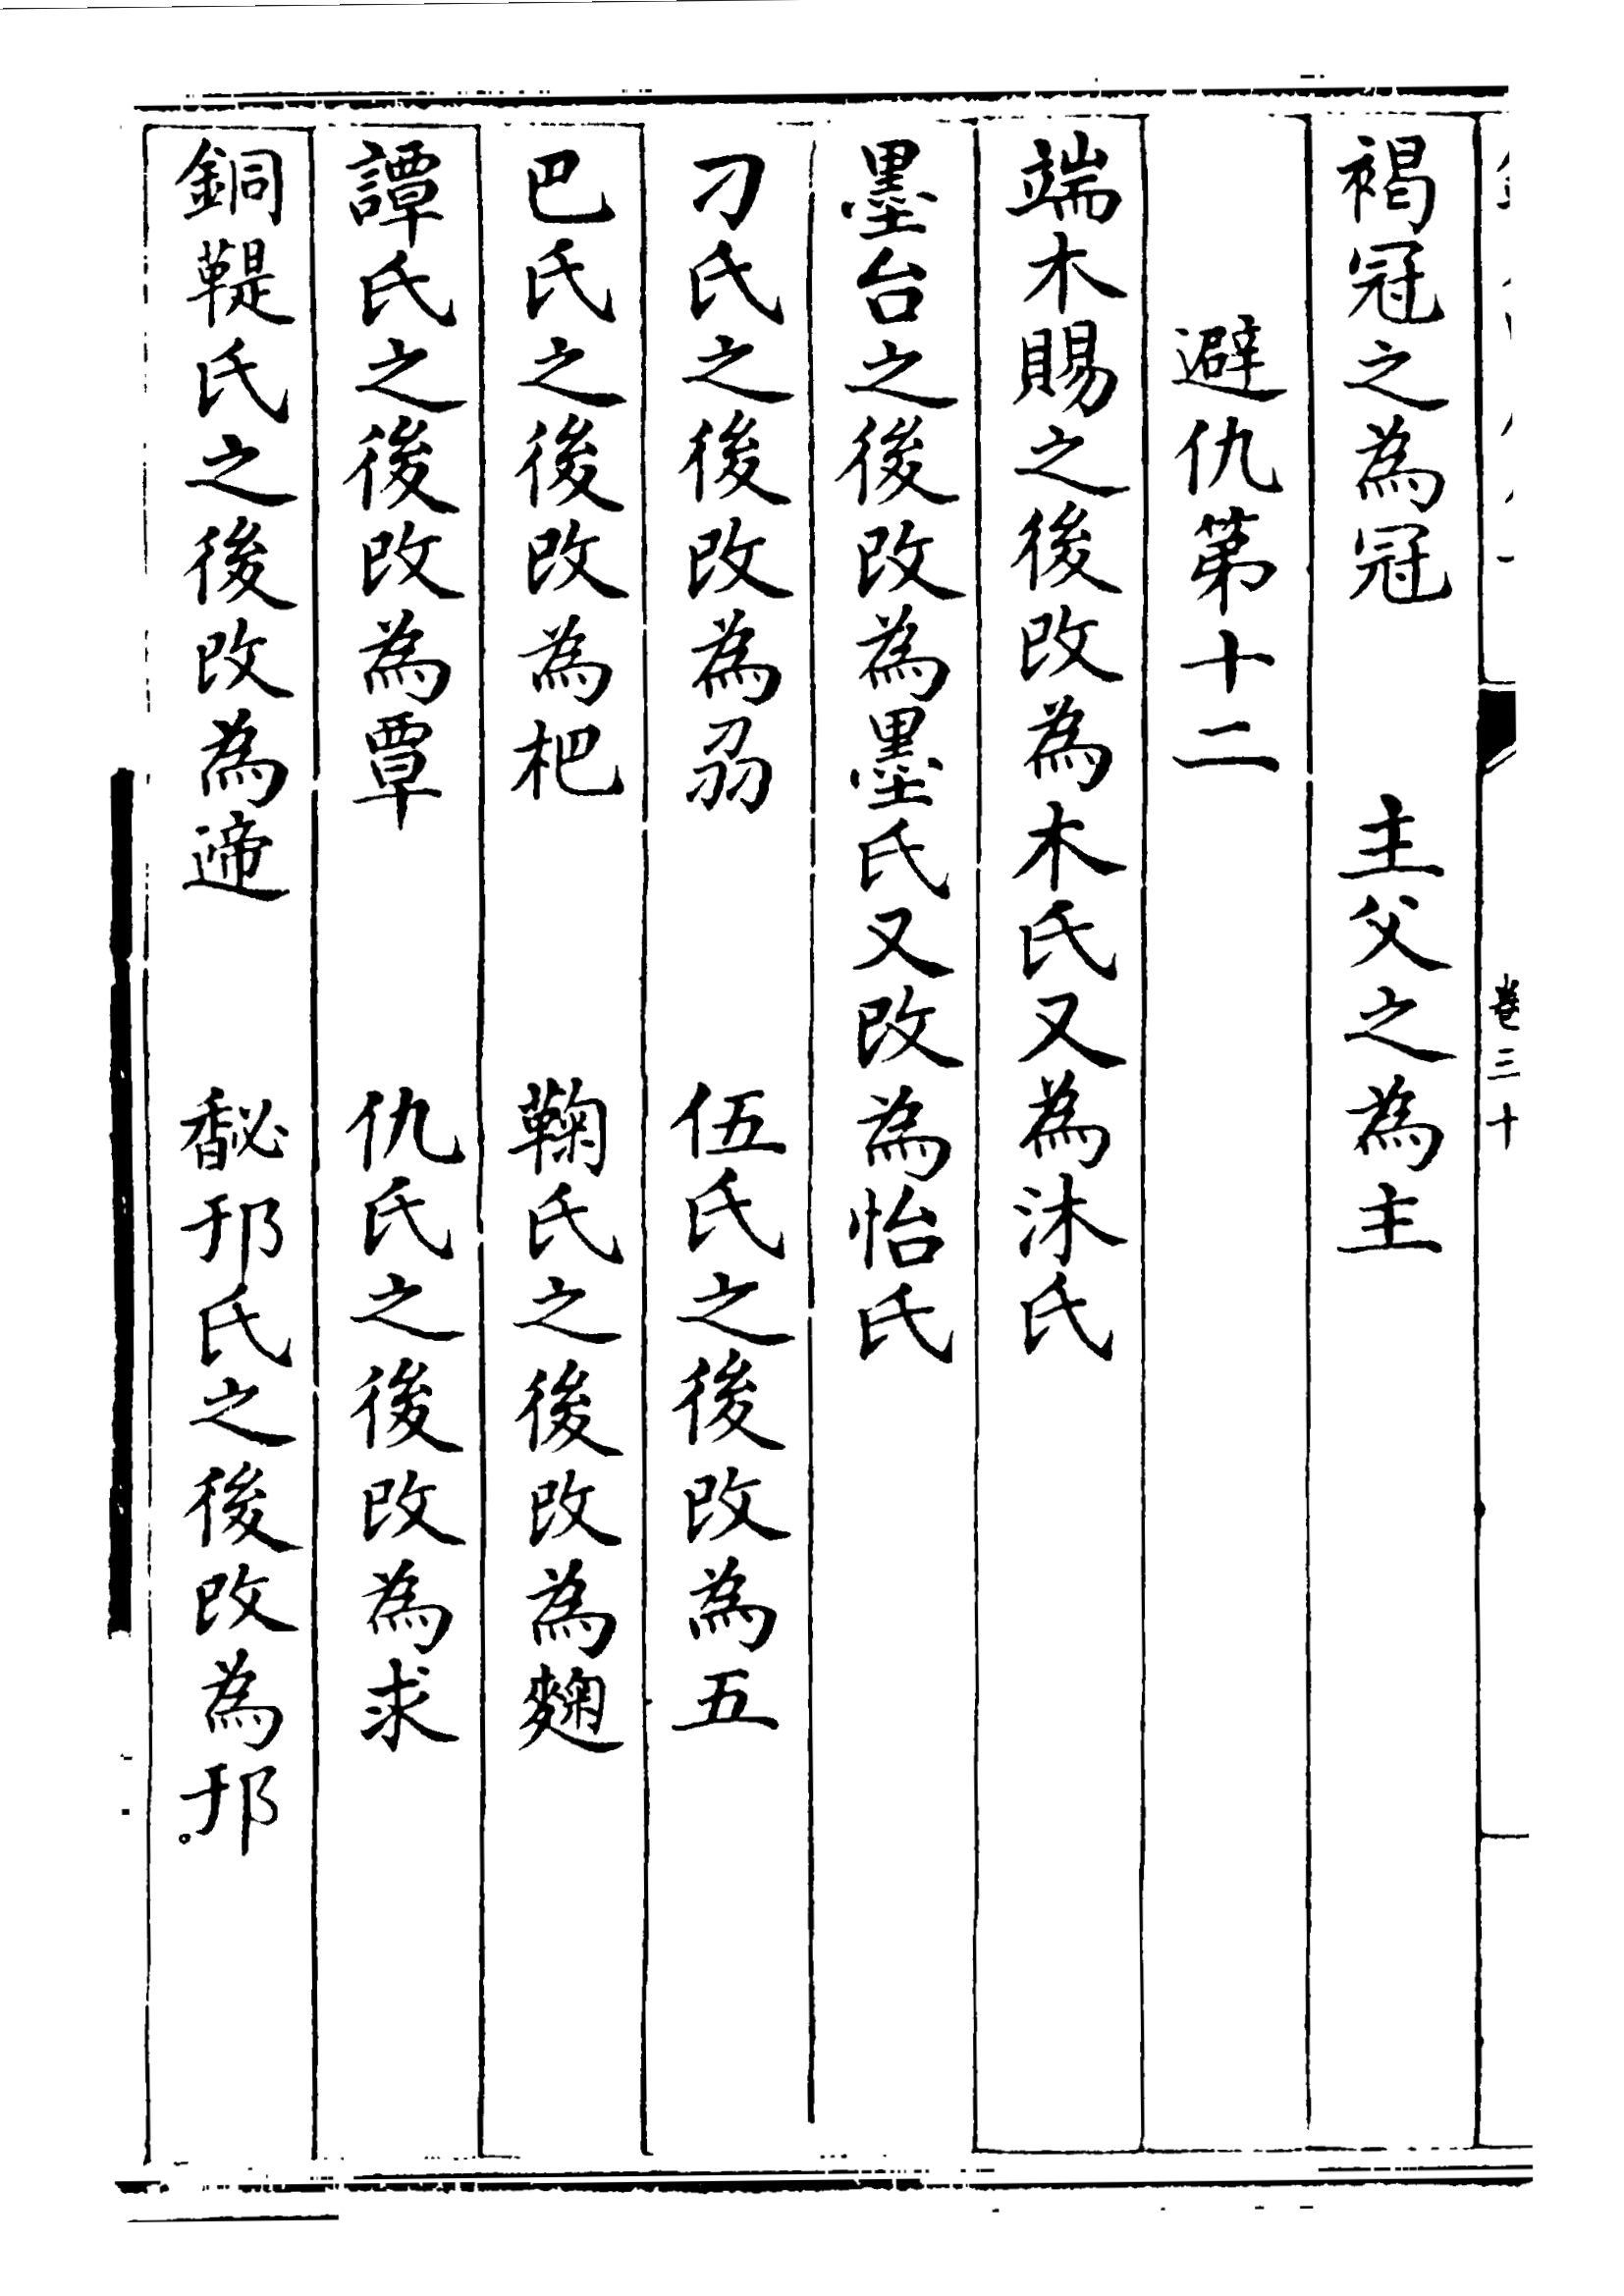 卷三十
褐冠之為冠　主父之為主
避仇第十二
端木賜之後改為木氏又為沐氏
墨台之後改為墨氏又改為怡氏
刁氏之後改為刕　伍氏之後改為五
巴氏之後改為杷　鞠氏之後改為麴
譚氏之後改為覃　仇氏之後改為求
銅鞮氏之後改為遆　馝邘氏之後改為邘